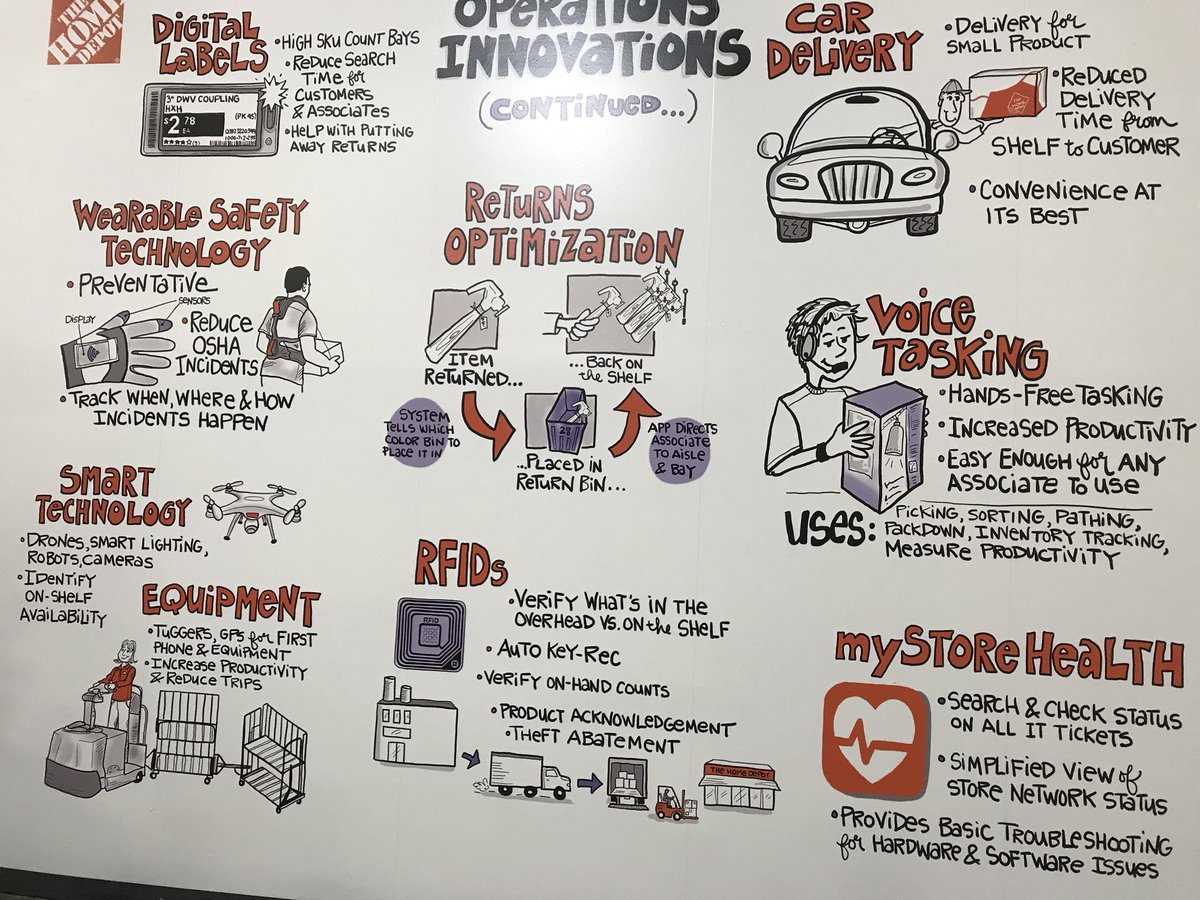 THE
HOME
DEPOT
OPERATIONS
INNOVATIONS
(CONTINUED...)
DIGITAL
LABELS
• HIGH SKU COUNT BAYS
• REDUCE SEARCH
TIME for
CUSTOMERS
& ASSOCIATES
• HELP WITH PUTTING
AWAY RETURNS
3" DWV COUPLING
HXH
$2 78
EA
(PK 45)
CAR
DELIVERY
• DELIVERY for
SMALL PRODUCT
• REDUCED
DELIVERY
TIME from
SHELF to CUSTOMER
• CONVENIENCE AT
ITS BEST
WEARABLE SAFETY
TECHNOLOGY
• PREVENTATIVE
SENSORS
DISPLAY
• REDUCE
OSHA
INCIDENTS
• TRACK WHEN, WHERE & HOW
INCIDENTS HAPPEN
RETURNS
OPTIMIZATION
ITEM
RETURNED...
SYSTEM
TELLS WHICH
COLOR BIN TO
PLACE IT IN
28
...PLACED IN
RETURN BIN...
APP DIRECTS
ASSOCIATE
TO AISLE
& BAY
...BACK ON
the SHELF
VOICE
TASKING
• HANDS-FREE TASKING
• INCREASED PRODUCTIVITY
• EASY ENOUGH for ANY
ASSOCIATE TO USE
USES: PICKING, SORTING, PATHING,
PACKDOWN, INVENTORY TRACKING,
MEASURE PRODUCTIVITY
SMART
TECHNOLOGY
• DRONES, SMART LIGHTING,
ROBOTS, CAMERAS
• IDENTIFY
ON-SHELF
AVAILABILITY
EQUIPMENT
• TUGGERS, GPS for FIRST
PHONE & EQUIPMENT
• INCREASE PRODUCTIVITY
& REDUCE TRIPS
RFIDs
RFID
• VERIFY WHAT'S IN THE
OVERHEAD VS. ON the SHELF
• AUTO KEY-REC
• VERIFY ON-HAND COUNTS
• PRODUCT ACKNOWLEDGEMENT
• THEFT ABATEMENT
THE HOME DEPOT
mySTORE HEALTH
• SEARCH & CHECK STATUS
ON ALL IT TICKETS
• SIMPLIFIED VIEW of
STORE NETWORK STATUS
• PROVIDES BASIC TROUBLESHOOTING
for HARDWARE & SOFTWARE ISSUES